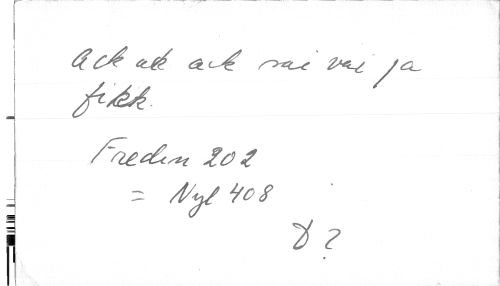 Ack ack ack vai vai ja
fikk.
Freden 202
= Nyl 408
D ?